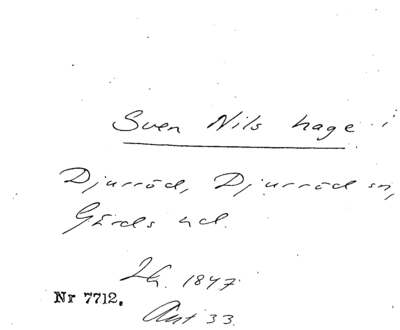 Sven Nils hage i
Djurröd, Djurröd sn,
Gärds hd.
Lh. 1847
Nr 7712.
Ant 33